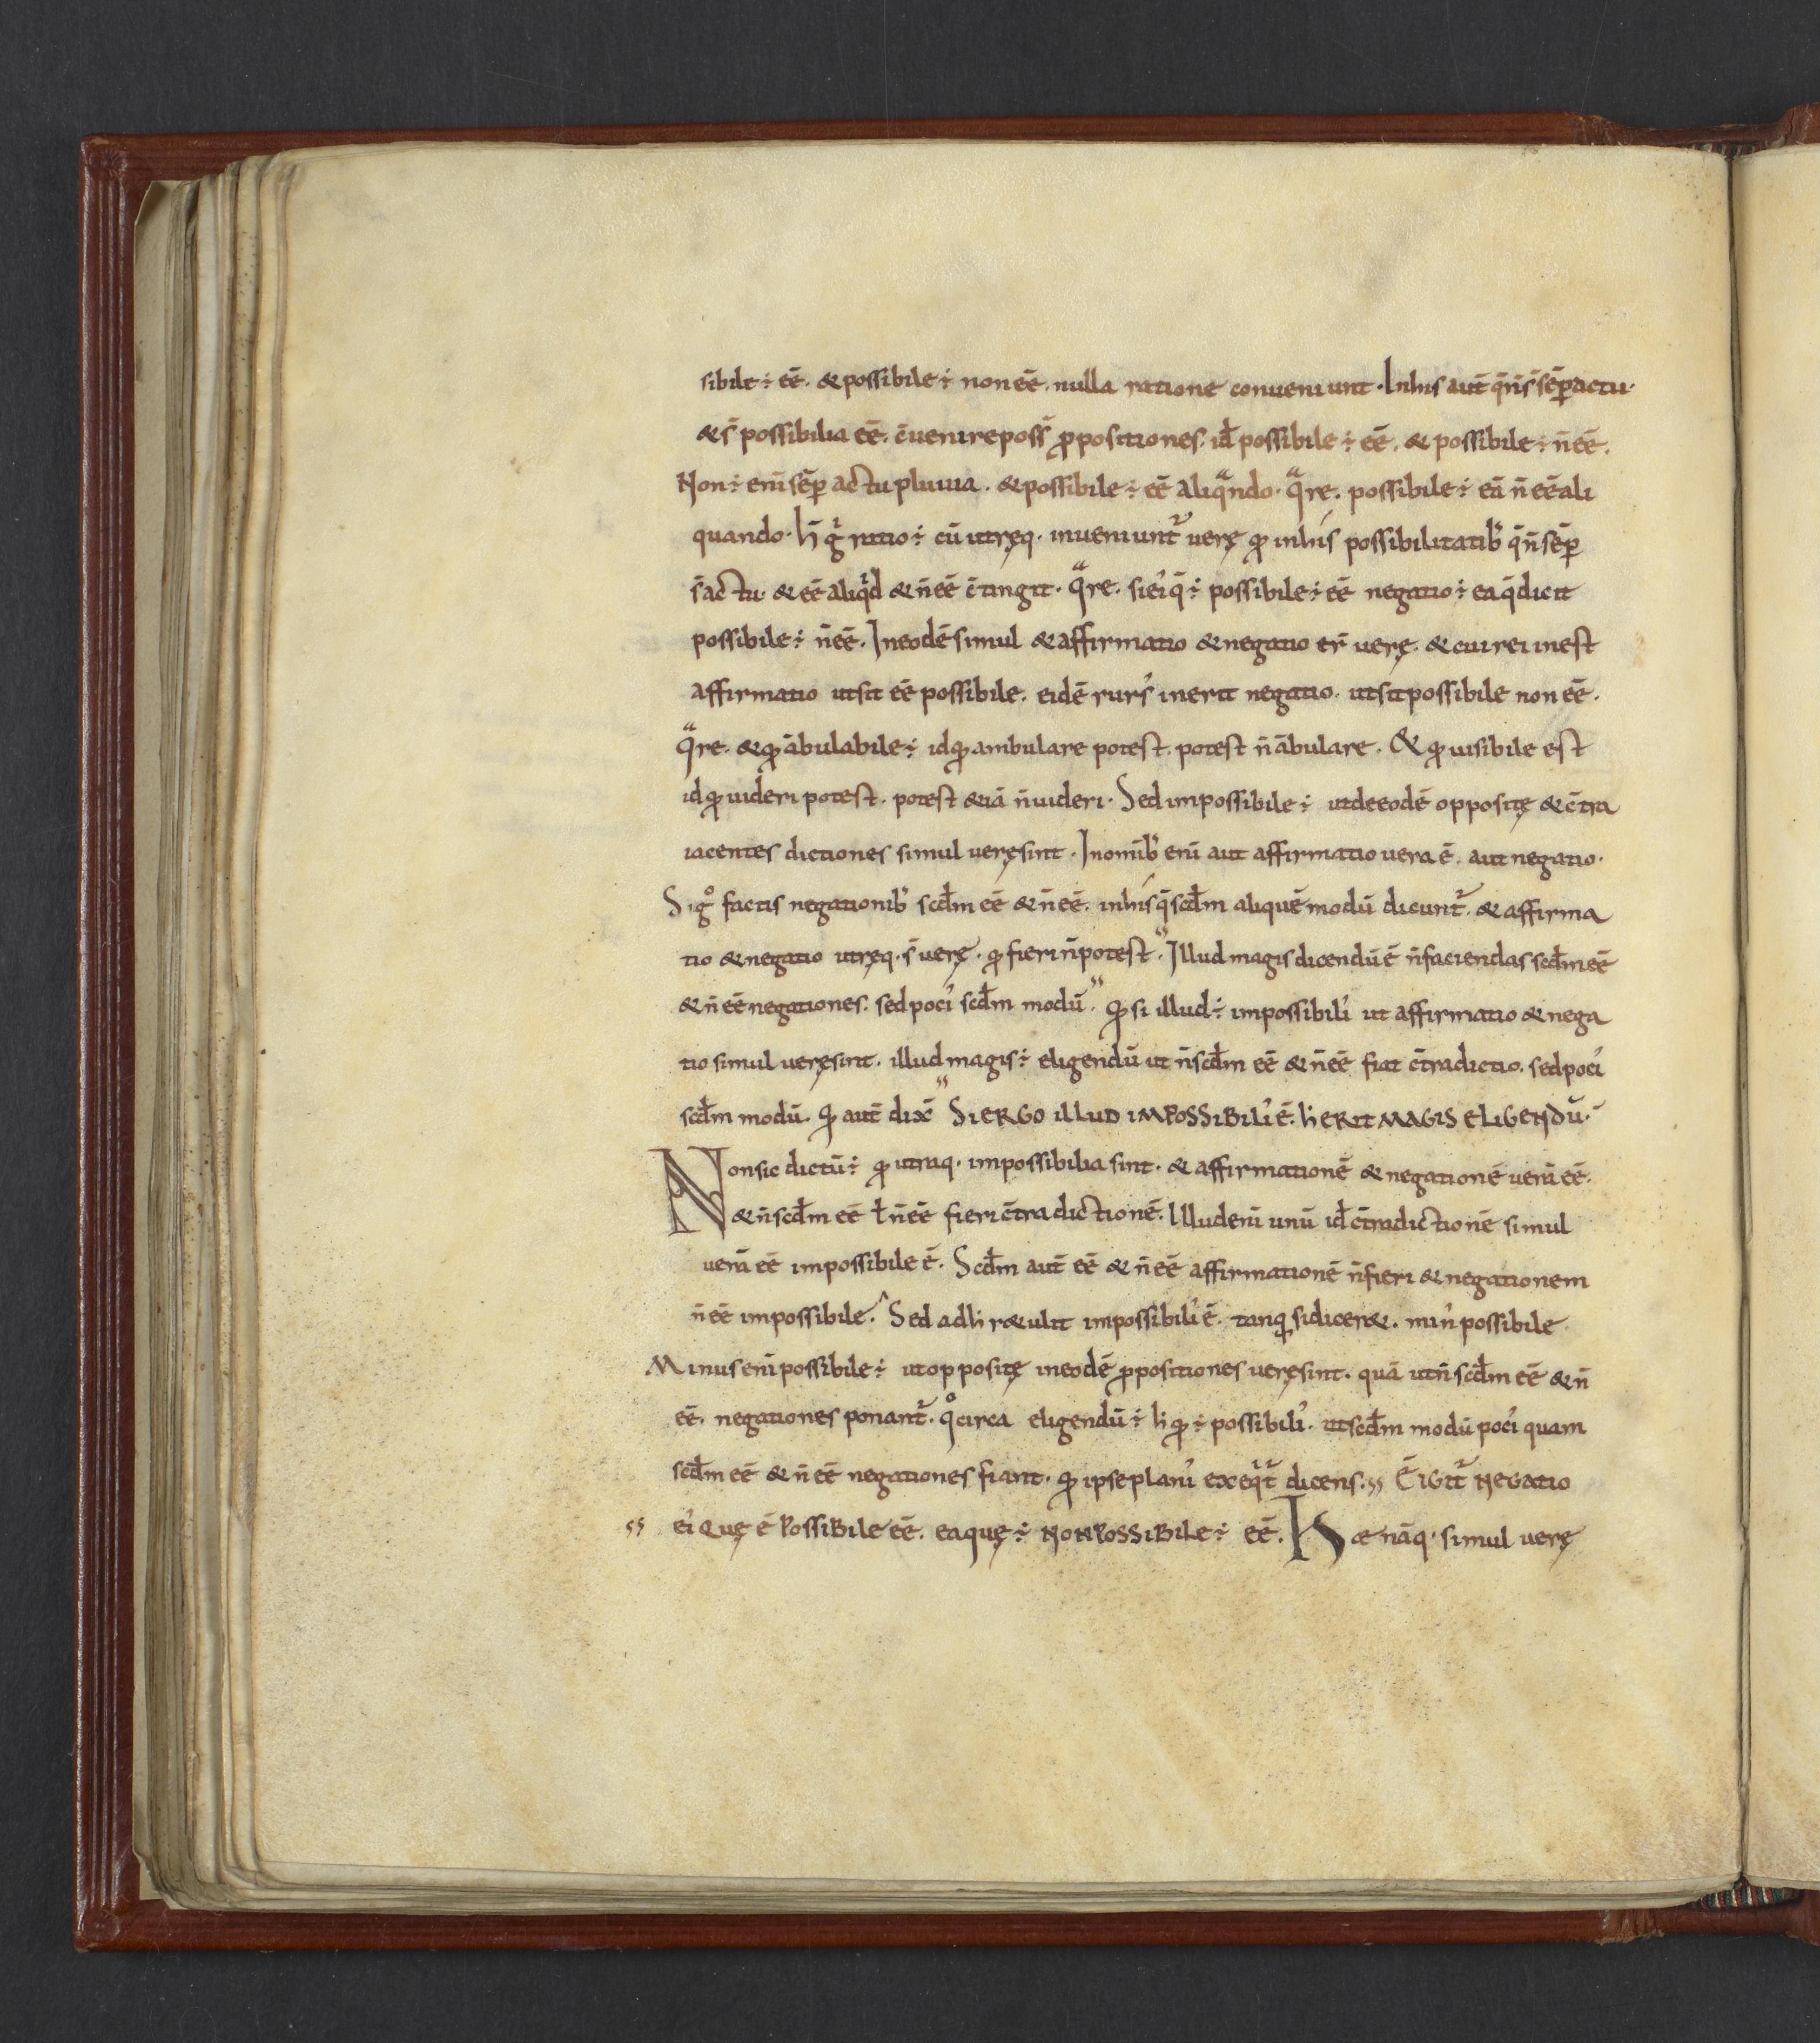 sibile ÷ eē. & possibile ÷ non eē. nulla ratione conueniunt. In his aut̄ q̄ n̄ s̄ sēp actu.
& s̄ possibilia eē. c̄uenire poss̄ ꝓpositiones. id̄ possibile ÷ eē. & possibile ÷ n̄ eē.
Non ÷ eni̅ sēp actu pluuia. & possibile ÷ eē aliqᵃndo. qᵃre. possibile ÷ eā n̄ eē ali
quando. h̄ gͥ ratio ÷ cū utręq. inueniunt᷑ uerę ꝙ in his possibilitatib᾽ q̄ n̄ sēp
s̄ actu. & eē aliqͥd & n̄ eē c̄tingit. qᵃre. si ei᾽ q̄ ÷ possibile ÷ eē negatio ÷ ea q̄ dicit
possibile ÷ n̄ eē. In eodē simul & affirmatio & negatio er̄ uerę. & cui rei inest
affirmatio ut sit eē possibile. eidē rurs᾽ inerit negatio. ut sit possibile non eē.
qᵃre. & ꝙ ābulabile ÷ id ꝙ ambulare potest. potest n̄ ābulare. & ꝙ uisibile est
id ꝙ uideri potest. potest &iā n̄ uideri. Sed impossibile ÷ ut de eodē oppositę & c̄tra
iacentes dictiones simul uerę sint. In omib᾽ eni̅ aut affirmatio uera ē. aut negatio.
Si gͦ factis negationib᾽ scd̄m eē & n̄ eē. in his q̄ scd̄m aliquē modū dicunt᷑. & affirma
tio & negatio utręq. s̄ uerę. ꝙ fieri n̄ potest. Illud magis dicendū ē n̄ faciendas scd̄m eē
& n̄ eē negationes. sed poci᾽ scd̄m modū. ꝙ si illud ÷ impossibili᾽ ut affirmatio & nega
tio simul uerę sint. illud magis ÷ eligendū ut n̄ scd̄m eē & n̄ eē fiat c̄tradictio. sed poci᾽
scd̄m modū. ꝙ aut̄ dix̄ SI ERGO ILLUD IMPOSSIBILI᾽ Ē. h ERIT MAGIS ELIGENDŪ.
Non sic dictū ÷ ꝙ utraq. impossibilia sint. & affirmationē & negationē uerā eē.
& n̄ scd̄m eē ł n̄ eē fieri c̄tradictionē. Illud eni̅ unū id̄ c̄tradictionē simul
uerā eē impossibile ē. Scd̄m aut̄ eē & n̄ eē affirmationē n̄ fieri & negationem
n̄ eē impossibile. Sed ad h r&ulit impossibili᾽ ē. tanꝗ si dicer&. min᾽ possibile
Minus eni̅ possibile ÷ ut oppositę in eodē ꝓpositiones uerę sint. quā ut n̄ scd̄m eē & n̄
eē. negationes ponant᷑. qͦcirca eligendū ÷ h ꝙ ÷ possibili᾽. ut scd̄m modū poci᾽ quam
scd̄m eē & n̄ eē negationes fiant. ꝙ ipse plani᾽ exeqͥt᷑ dicens. Ē IGIT᷑ NEGATIO
ei᾽ QUę ē POSSIBILE EĒ. ea quę ÷ NON POSSIBILE ÷ EĒ. Hae nāq. simul uerę